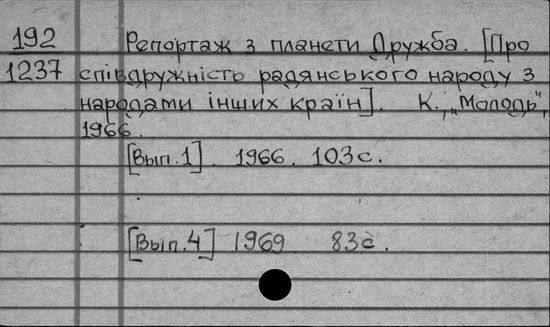 192 Репортаж з планети Дружба. [Про
1237 співдружність радянського народу з
народами інших країн]. К., „Молодь",
1966.
[Вып.1]. 1966. 103с.
[Вып.4] 1969. 83с.